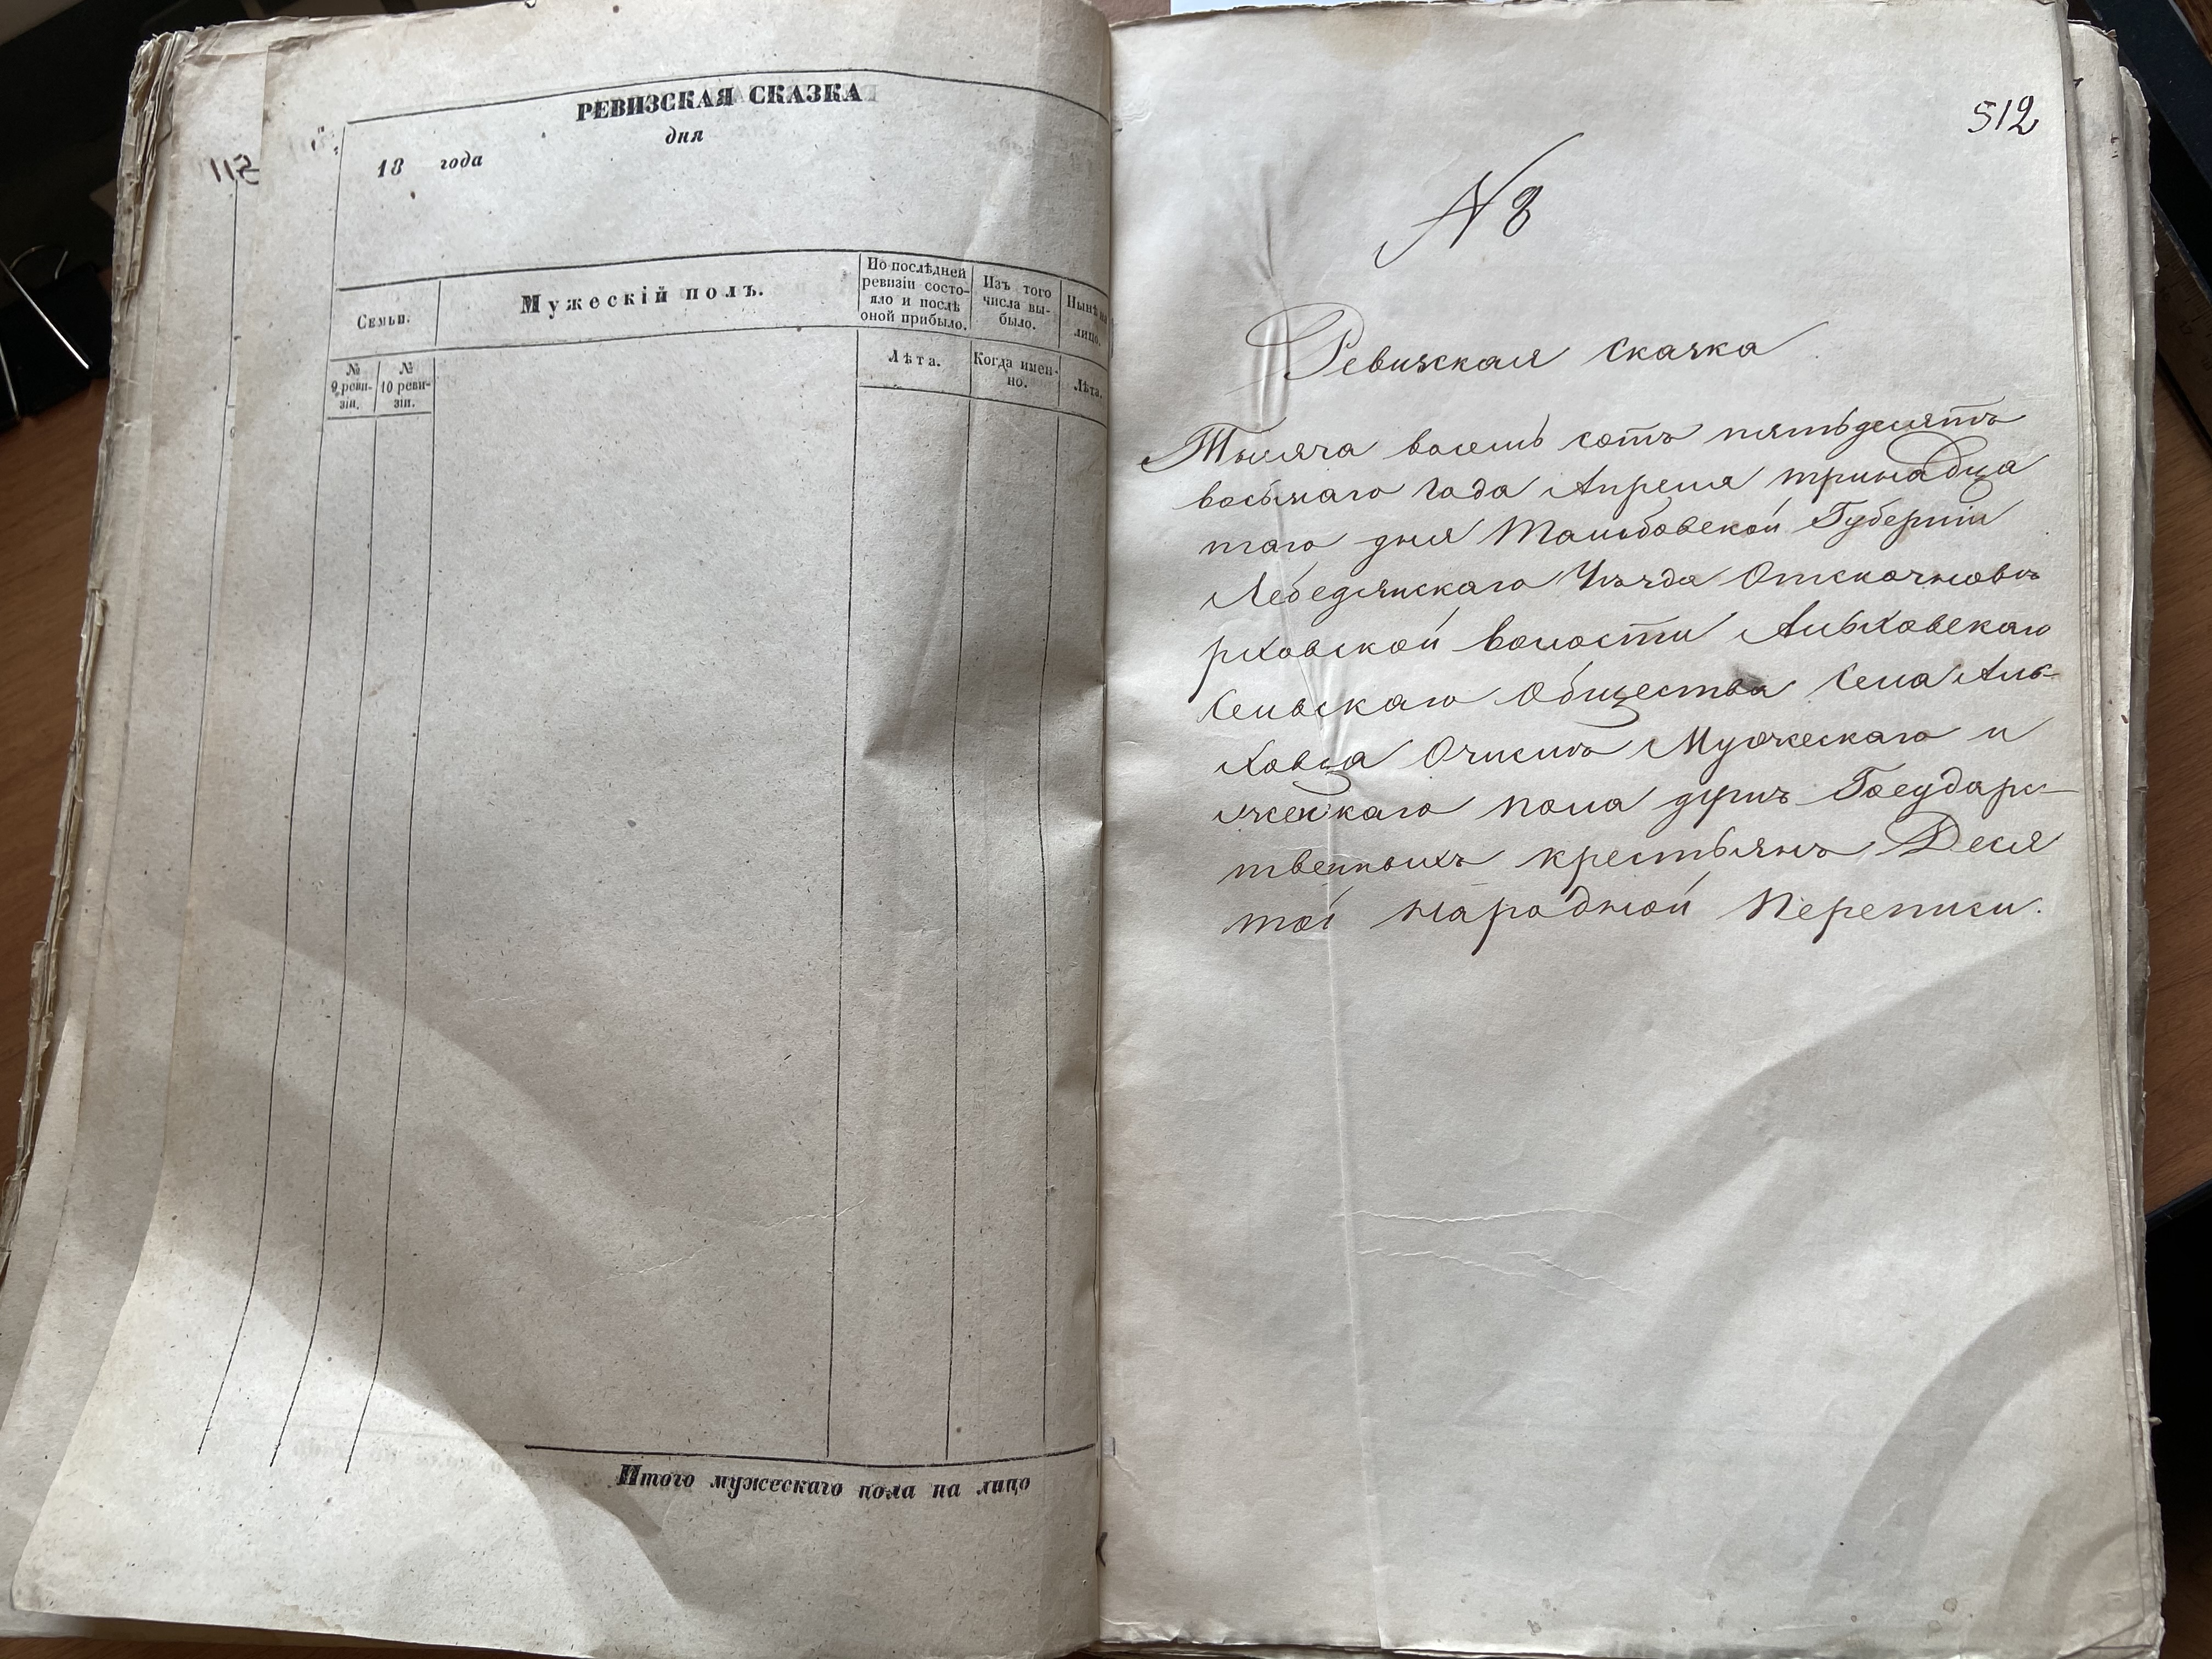 РЕВИЗСКАЯ СКАЗКА
дня
18 года
511
Семьи.
Мужескій полъ.
По послѣдней
ревизіи состо-
яло и послѣ
оной прибыло.
Изъ того
числа вы-
было.
Нынѣ на
лицо.
№
9 реви-
зіи.
№
10 реви-
зіи.
Лѣта.
Когда имен-
но.
Лѣта.
Итого мужескаго пола на лицо
512
N 8
Ревизская сказка
Тысяча восемь сотъ пятьдесятъ
восьмаго Года Апреля тринадца
таго дня Тамбовской Губерніи
Лебедянскаго Уѣзда
ской волости
Сельскаго Общества Села
Мужескаго и
женскаго пола душъ Государс-
твенныхъ крестьянъ Деся
той народной Переписи.